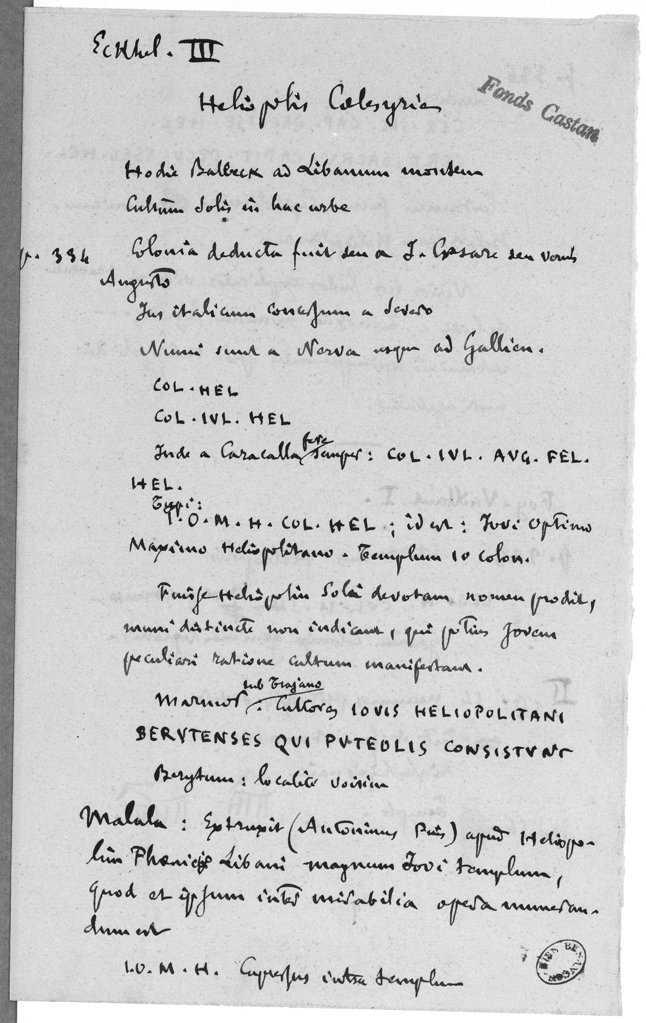 Eckhel. III
Fonds Castan
Heliopolis Cœlesyriæ
Hodie Balbeck ad Libanum montem
Cultum Solis in hac urbe
p. 334 Colonia deducta fuit seu a J. Cæsare seu
Augusto
Jus italicum concessum a Severo
Numi sunt a Nerva usque ad Gallien.
COL. HEL
COL. IVL. HEL
Inde a Caracalla fere semper : COL. IVL. AVG. FEL.
HEL.
Typi :
I. O. M. H. COL. HEL ; id est : Jovi Optimo
Maximo Heliopolitano. Templum 10 colon.
Fuisse Heliopolin Soli devotam nomen prodit,
numi distincte non indicant, qui potius Jovem
peculiari ratione cultum manifestant.
sub Trajano
Marmor : Cultores IOVIS HELIOPOLITANI
BERYTENSES QUI PVTEOLIS CONSISTVNT
Berytum : localité voisine
Malala : Extruxit (Antoninus Pius) apud Heliopo-
lin Phœnices Libani magnum Jovi templum,
quod et ipsum inter mirabilia opera numeran-
dum est
I. O. M. H. Cupressus intra templum